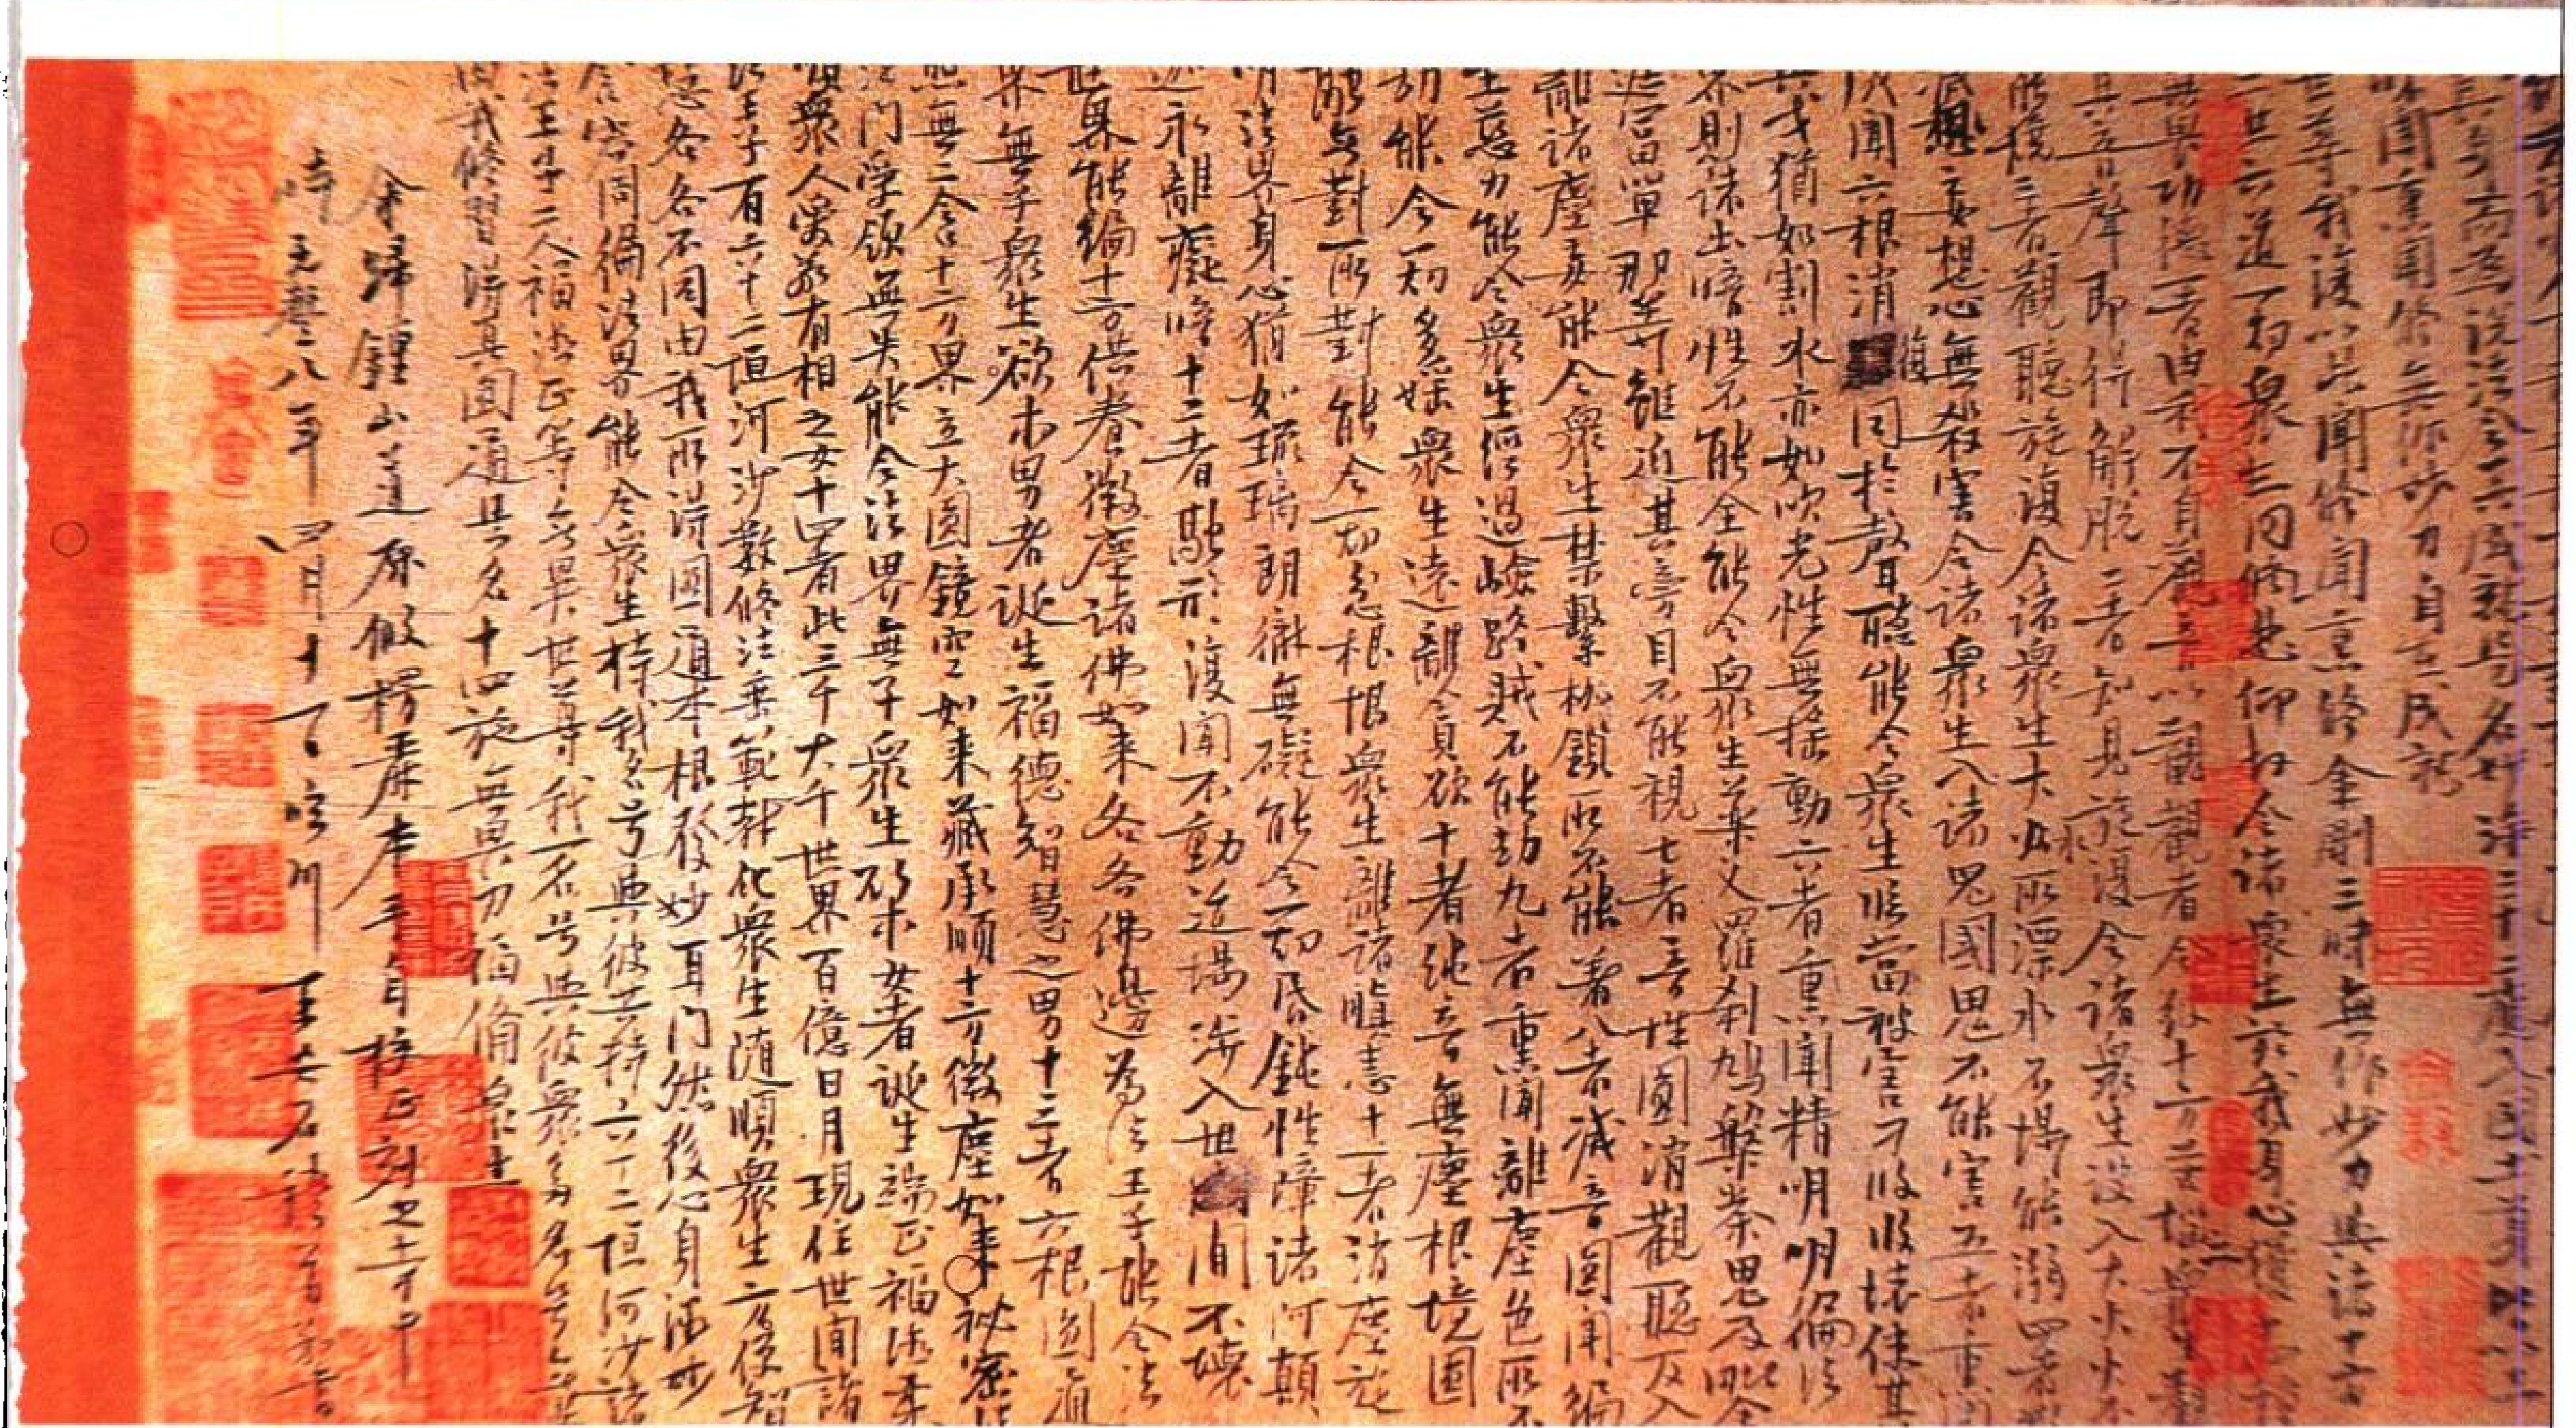 其身而為說法令其成就是名妙淨三十二應入國土身
聞熏聞修無作妙力自在成就
世尊我復以此聞熏聞修金剛三昧無作妙力與諸十方
三世六道一切眾生同悲仰故令諸眾生於我身心獲
無畏功德一者由我不自觀音以觀觀者令彼十方苦惱眾生觀
其音聲即得解脫二者知見旋復令諸眾生設入大火火不
能燒三者觀聽旋復令諸眾生大水所漂水不能溺四者斷
滅妄想心無殺害令諸眾生入諸鬼國鬼不能害五者熏聞
成聞六根消復同於聲聽能令眾生臨當被害刀段段壞使其
兵戈猶如割水亦如吹光性無搖動六者熏聞精明明徧法
界則諸幽暗性不能全能令眾生藥叉羅剎鳩槃荼鬼及毗舍
遮富單那等雖近其旁目不能視七者音性圓消觀聽反入
離諸塵妄能令眾生禁繫枷鎖所不能著八者滅音圓聞徧
生慈力能令眾生經過嶮路賊不能劫九者熏聞離塵色所不
劫能令一切多婬眾生遠離貪欲十者純音無塵根境圓
融無對所對能令一切忿恨眾生離諸瞋恚十一者消塵旋
明法界身心猶如琉璃朗徹無礙能令一切昏鈍性障諸阿顛
迦永離癡暗十二者融形復聞不動道場涉入世間不壞
世界能徧十方供養微塵諸佛如來各各佛邊為法王子能令法
界無子眾生欲求男者誕生福德智慧之男十三者六根圓通
照無二含十方界立大圓鏡空如來藏承順十方微塵如來秘密法
法門受領無失能令法界無子眾生欲求女者誕生端正福德柔
順眾人愛敬有相之女十四者此三千大千世界百億日月現住世間諸
法王子有六十二恒河沙數修法垂範教化眾生隨順眾生方便智
慧各各不同由我所得圓通本根發妙耳門然後心身微妙
含容周徧法界能令眾生持我名号與彼共持六十二恒河沙諸
法王子二人福德正等無異世尊我一名号與彼眾多名号無異
由我修習得真圓通是名十四施無畏力福備眾生
余歸鍾山道原假楞嚴本手自校正刻之寺中
時元豐八年四月十一日臨川王安石稽首敬書